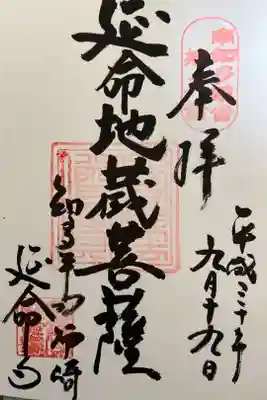 奉拝
平成三十年
九月十九日
延命地蔵菩薩
知多半田市崎
延命寺